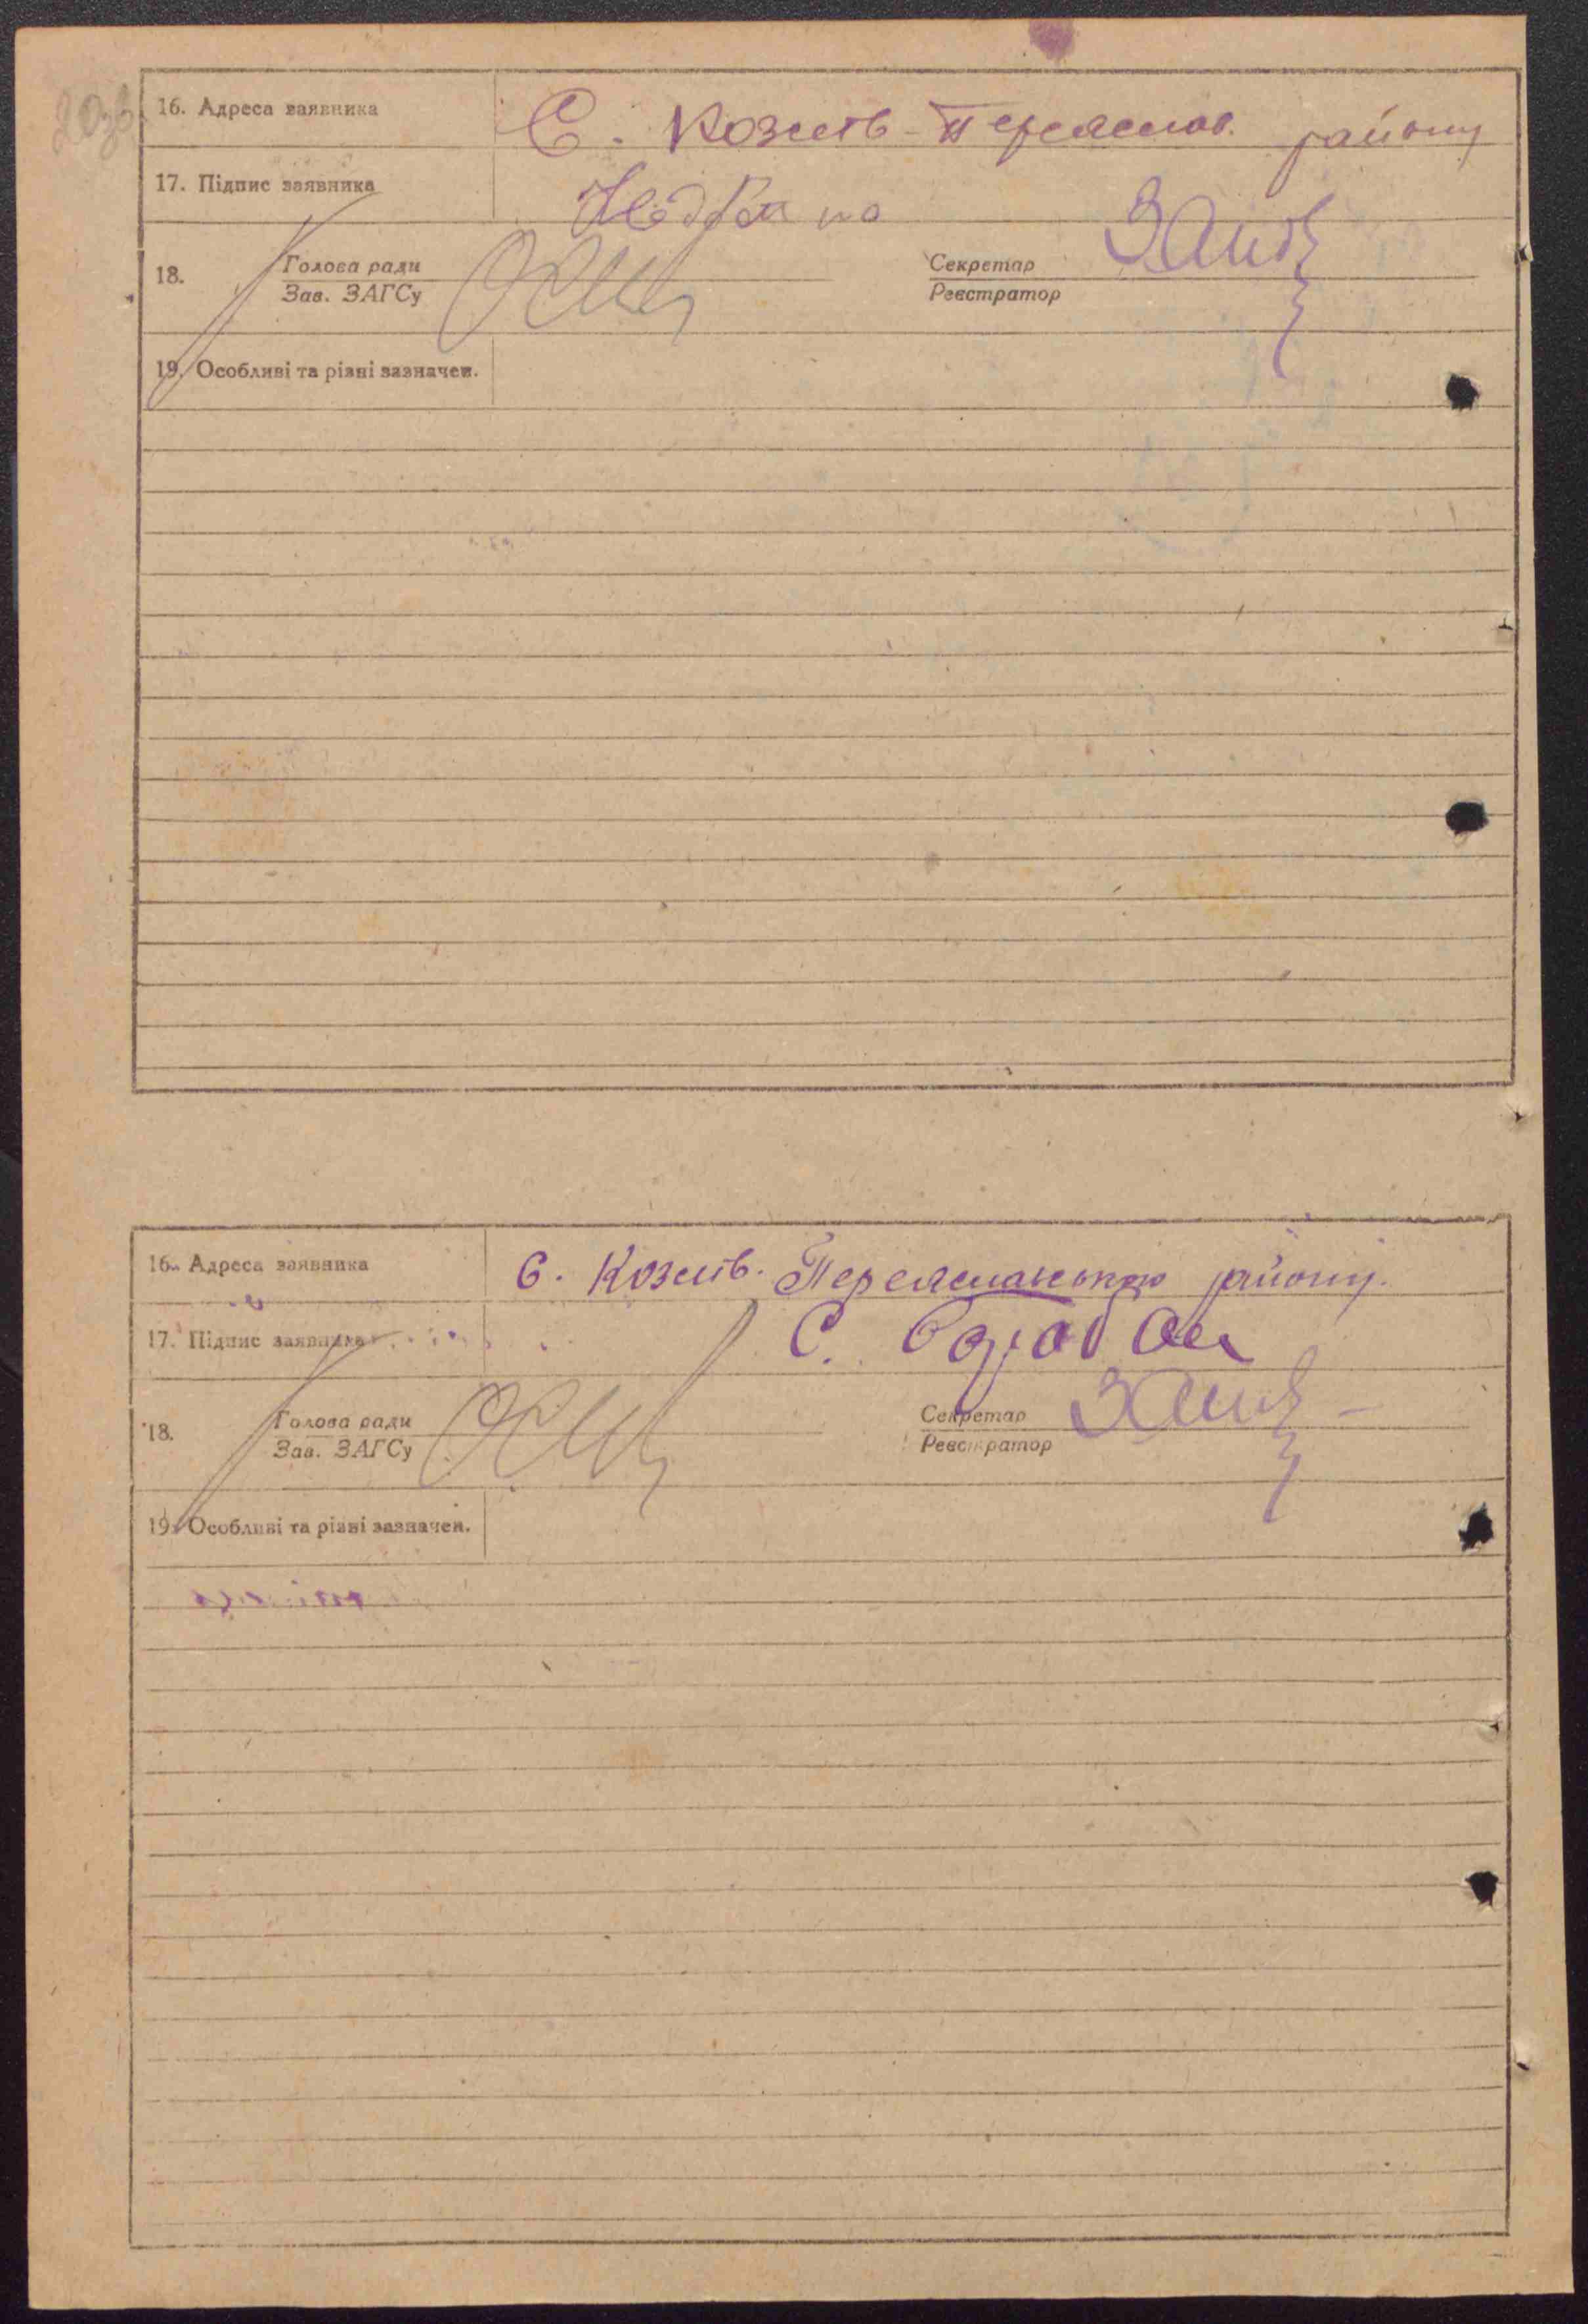 16. Адреса заявника С. Козлів Переяслав. району
17. Підпис заявника
18. Голова ради Секретар
Зав. ЗАГСу Реєстратор
19. Особливі та різні зазначен.
16. Адреса заявника С. Козлів. Переяславського району.
17. Підпис заявника С.
18. Голова ради Секретар
Зав. ЗАГСу Реєстратор
19. Особливі та різні зазначен.